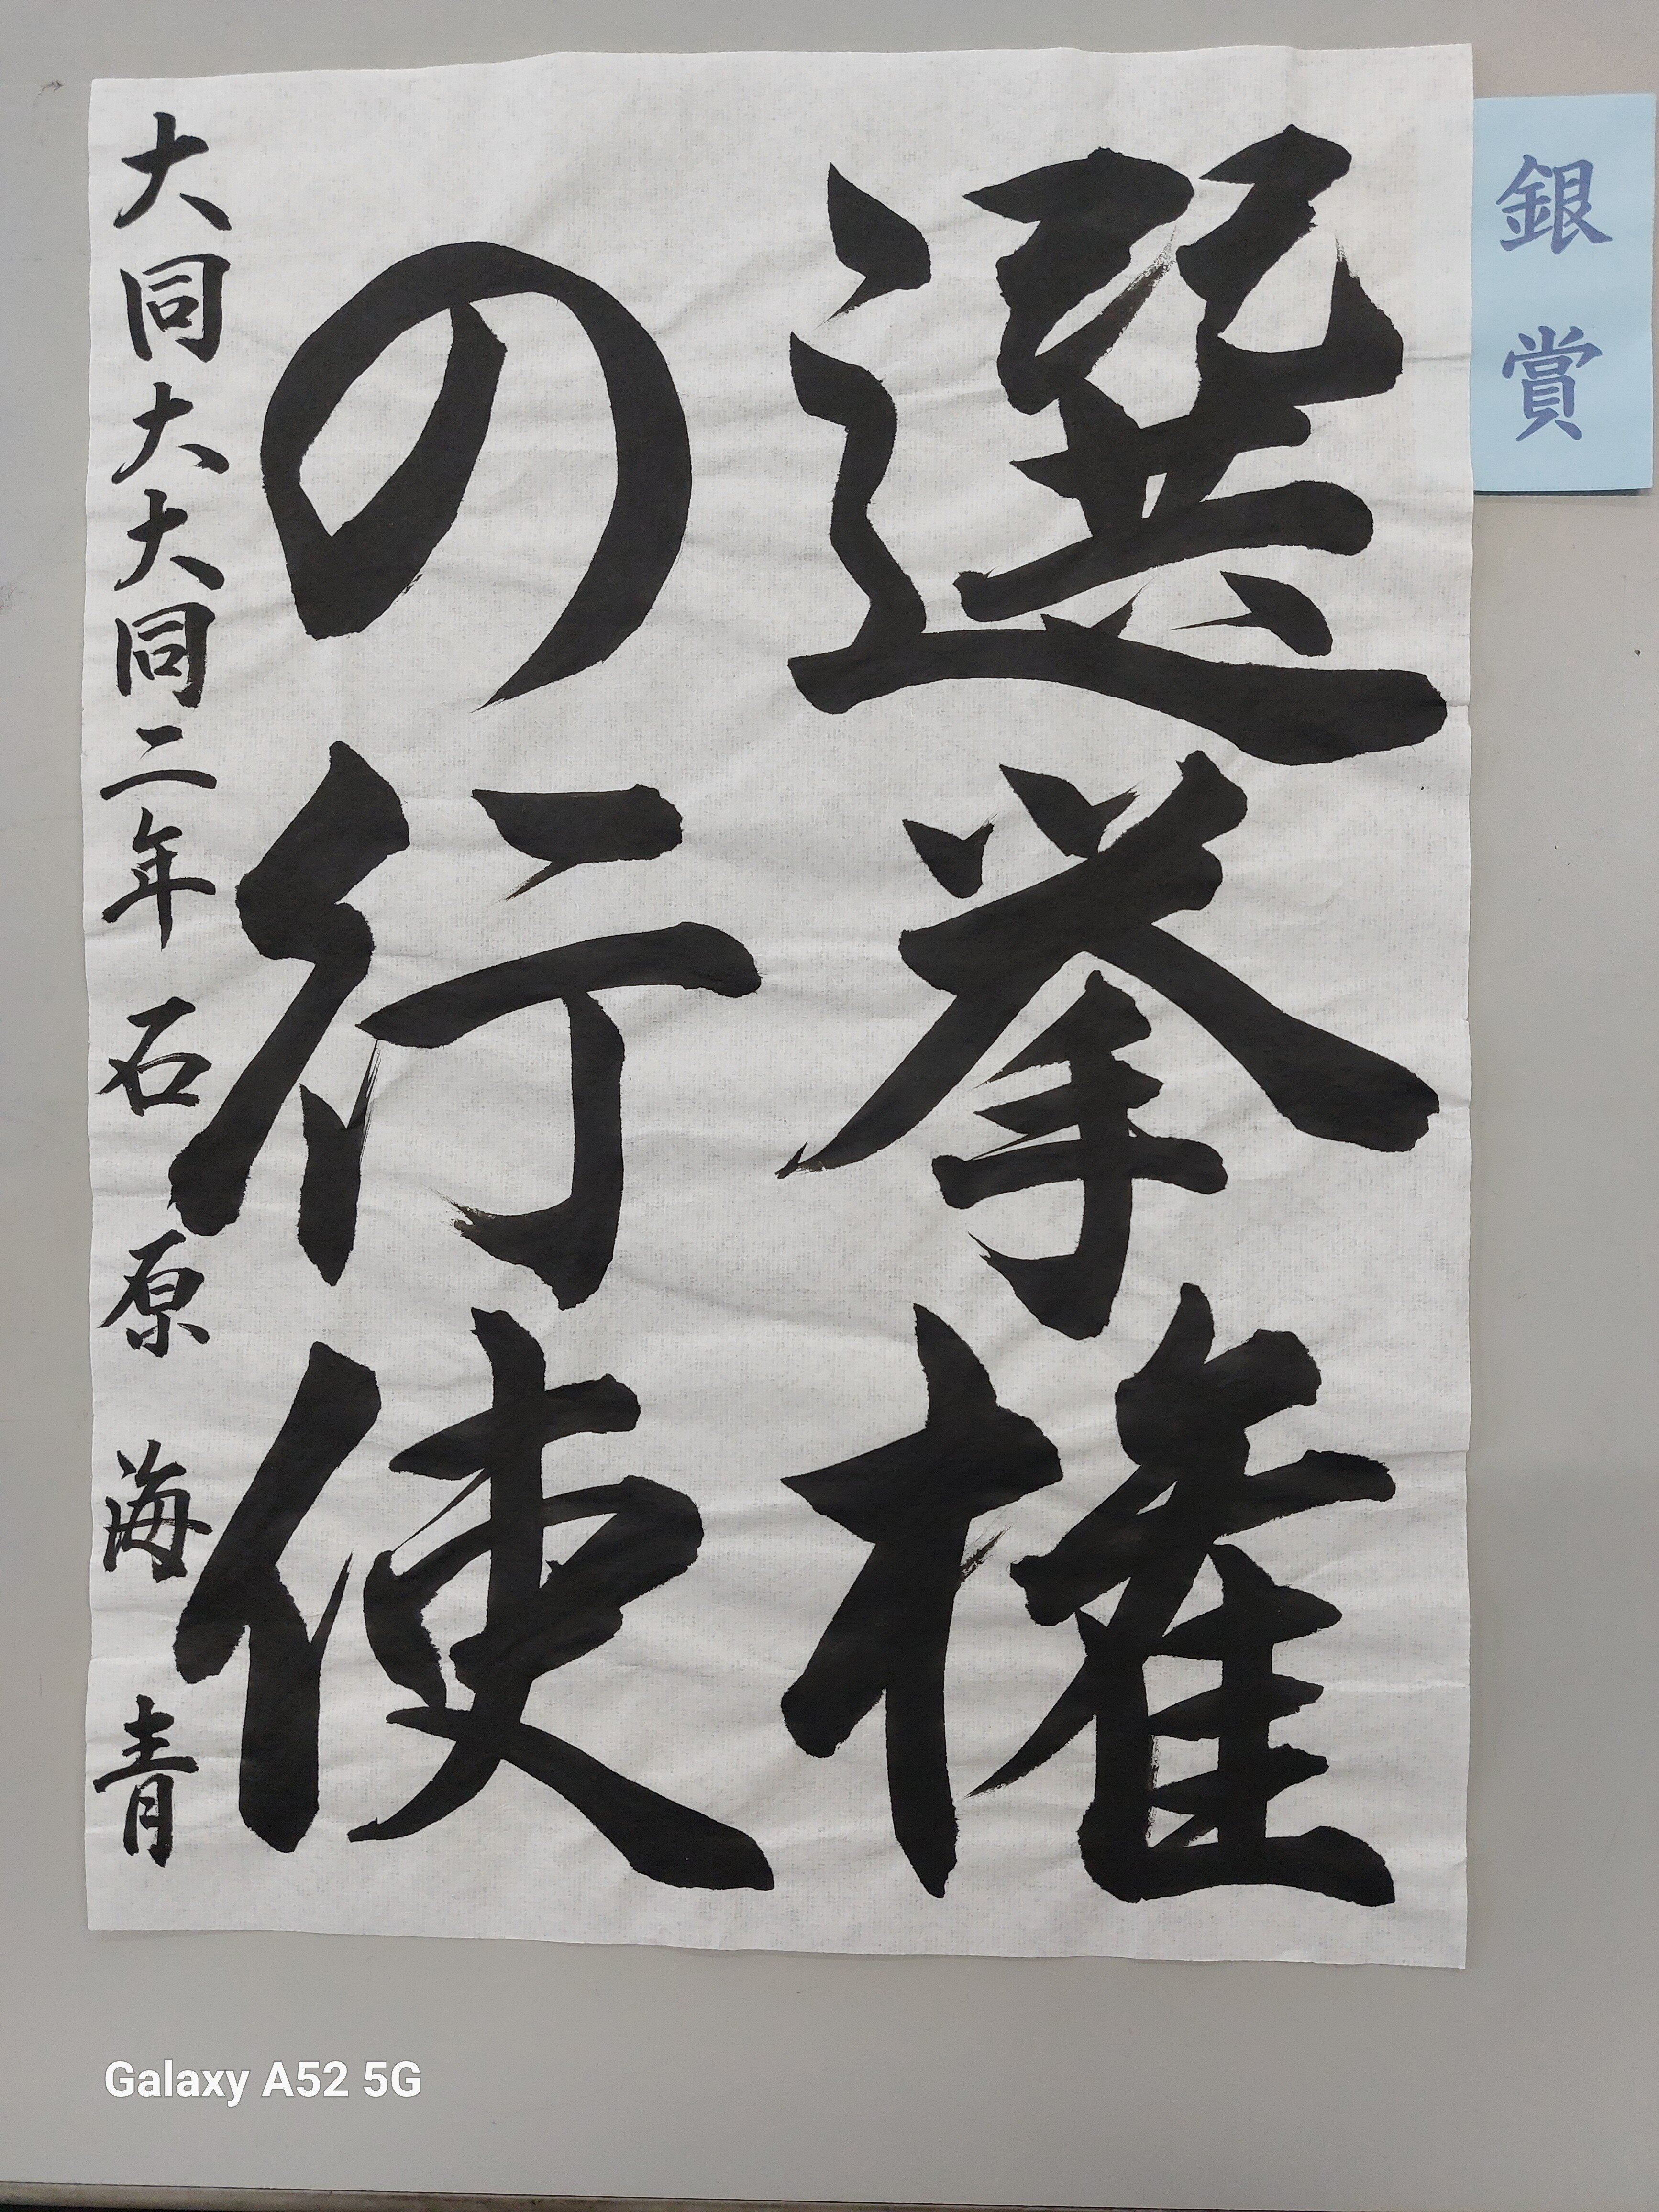 銀賞
選挙権
の行使
大同大大同二年 石原海青
Galaxy A52 5G